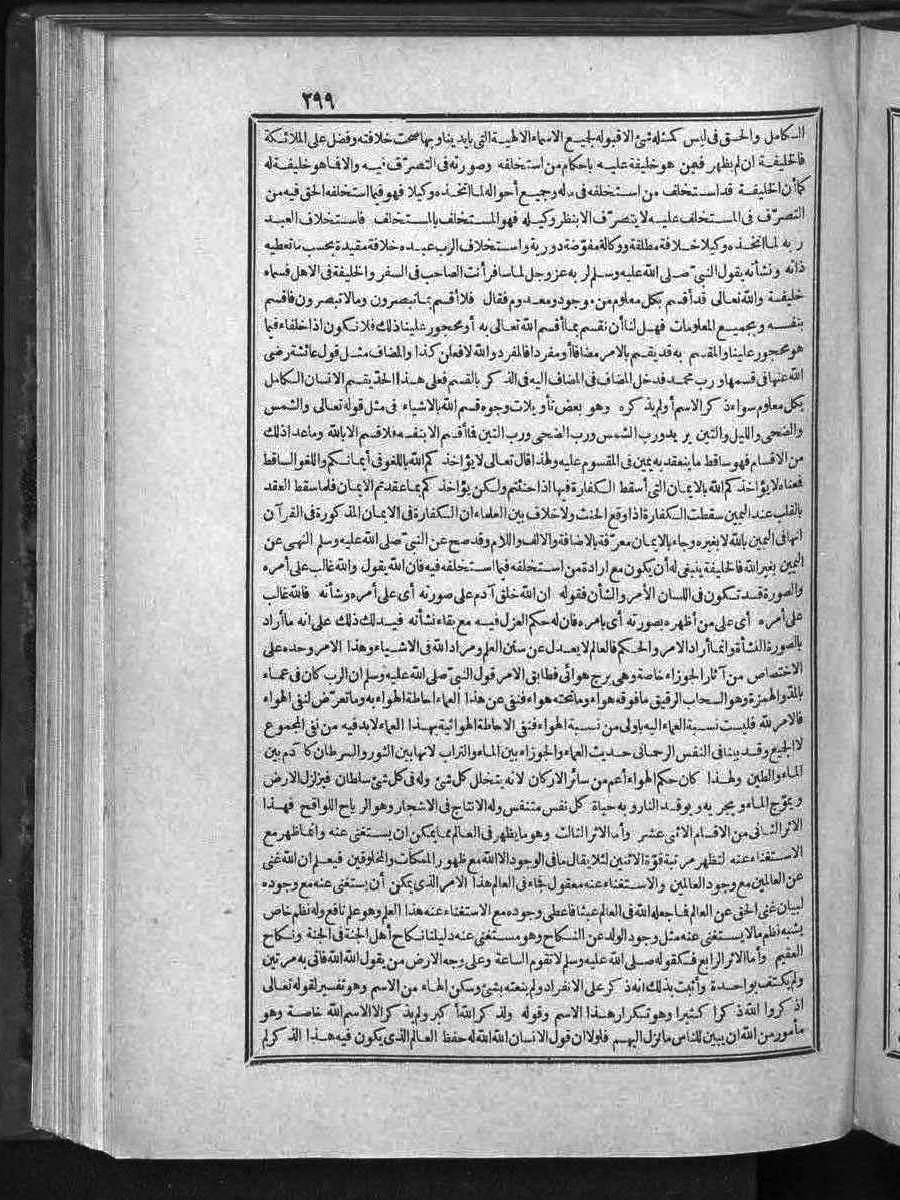 ٢٩٩
الكامل والحق في ليس كمثله شئ الا قبوله لجميع الاسماء الالهية التي بايدينا وبها صحت خلافته وفضل على الملائكة
فالخليفة ان لم يظهر فيمن هو خليفة عليه باحكام من استخلفه وصورته في التصرف فيه والا فما هو خليفة له
كما أن الخليفة قد استخلف من استخلفه في ماله وجميع أحواله لما اتخذه وكيلا فهو فيما استخلفه الحق فيه من
التصرف في المستخلف عليه لا يتصرف الا بنظر وكيله فهو المستخلف بالمستخلف فاستخلاف العبد
ربه لما اتخذه وكيلا خلافة مطلقة ووكالة مفوضة دورية واستخلاف الرب عبده خلافة مقيدة بحسب ما تعطيه
ذاته ونشأته يقول النبي صلى الله عليه وسلم لربه عز وجل لما سافر أنت الصاحب في السفر والخليفة في الاهل فسماه
خليفة والله تعالى قد أقسم بكل معلوم من موجود ومعدوم فقال فلا أقسم بما تبصرون وما لا تبصرون فاقسم
بنفسه وبجميع المعلومات فهل لنا أن نقسم بما أقسم الله تعالى به أو محجور علينا ذلك فلا نكون اذا خلفاء فيما
هو محجور علينا والمقسم به قد يقسم بالامر مضافا أو مفردا فالمفرد والله لافعلن كذا والمضاف مثل قول عائشة رضي
الله عنها في قسمها ورب محمد فدخل المضاف في المضاف اليه في الذكر بالقسم فعلى هذا الحد يقسم الانسان الكامل
بكل معلوم سواء ذكر الاسم أو لم يذكره وهو بعض تأويلات وجوه قسم الله بالاشياء في مثل قوله تعالى والشمس
والضحى والليل والتين يريد ورب الشمس ورب الضحى ورب التين فما أقسم الا بنفسه فلا قسم الا بالله وما عدا ذلك
من الاقسام فهو ساقط ما ينعقد به يمين في المقسوم عليه ولهذا قال تعالى لا يؤاخذكم الله باللغو في أيمانكم واللغو الساقط
فمعناه لا يؤاخذكم الله بالايمان التي أسقط الكفارة فيها اذا حنثتم ولكن يؤاخذكم بما عقدتم الايمان فلما سقط العقد
بالقلب عند اليمين سقطت الكفارة اذا وقع الحنث ولا خلاف بين العلماء ان الكفارة في الايمان المذكورة في القرآن
انها في اليمين بالله لا بغيره وجاء بالايمان معرفة بالاضافة والالف واللام وقد صح عن النبي صلى الله عليه وسلم النهى عن
اليمين بغير الله فالخليفة ينبغي له أن يكون مع ارادة من استخلفه فيما استخلفه فيه فان الله يقول والله غالب على أمره
والصورة قد تكون في اللسان الأمر والشأن فقوله ان الله خلق آدم على صورته أي على أمره وشأنه فالله غالب
على أمره أي على من أظهره بصورته أي بامره فان له حكم العزل فيه مع بقاء نشأته فيدلك ذلك على انه ما أراد
بالصورة النشأة وانما أراد الامر والحكم فالعالم لا يعدل عن سنن العلم ومراد الله في الاشياء وهذا الامر وحده على
الاختصاص من آثار الجوزاء خاصة وهي برج هوائي فطابق الامر قول النبي صلى الله عليه وسلم ان الرب كان في عماء
بالمد والهمزة وهو السحاب الرقيق ما فوقه هواء وما تحته هواء فنفى عن هذا العماء احاطة الهواء به وما تعرض لنفي الهواء
فالامر لله فليست نسبة العماء اليه باولى من نسبة الهواء فنفى الاحاطة الهوائية بهذا العماء لا بد فيه من نفي المجموع
لا الجميع وقد بينا في النفس الرحماني حديث العماء والجوزاء بين الماء والتراب لانها بين الثور والسرطان كآدم بين
الماء والطين ولهذا كان حكم الهواء أعم من سائر الاركان لانه يتخلل كل شئ وله في كل شئ سلطان فيزلزل الارض
ويموج الماء ويجريه ويوقد النار وبه حياة كل نفس متنفس وله الانتاج في الاشجار وهو الرياح اللواقح فهذا
الاثر الثاني من الاقسام الاثنى عشر وأما الاثر الثالث وهو ما يظهر في العالم مما يمكن ان يستغنى عنه وانما ظهر مع
الاستغناء عنه لتظهر مرتبة قوة الاثنين لئلا يقال ما في الوجود الا الله مع ظهور الممكنات والمخلوقين فيعلم ان الله غنى
عن العالمين مع وجود العالمين والاستغناء عنه معقول فجاء في العالم هذا الامر الذي يمكن أن يستغنى عنه مع وجوده
لبيان غنى الحق عن العالم فما جعله الله في العالم عبثا فاعطى وجوده مع الاستغناء عنه هذا العلم وهو علم نافع وله نظم خاص
يشبه نظم ما لا يستغنى عنه مثل وجود الولد عن النكاح وهو مستغنى عنه دليلنا نكاح أهل الجنة في الجنة ونكاح
العقيم وأما الاثر الرابع فكقوله صلى الله عليه وسلم لا تقوم الساعة وعلى وجه الارض من يقول الله الله فاتى به مرتين
ولم يكتف بواحدة وأثبت بذلك انه ذكر على الانفراد ولم ينعته بشئ وسكن الهاء من الاسم وهو تفسير لقوله تعالى
اذكروا الله ذكرا كثيرا وهو تكرار هذا الاسم وقوله ولذكر الله أكبر ولم يذكر الا الاسم الله خاصة وهو
مأمور من الله ان يبين للناس ما نزل اليهم فلولا ان قول الانسان الله الله له حفظ العالم الذي يكون فيه هذا الذكر لم